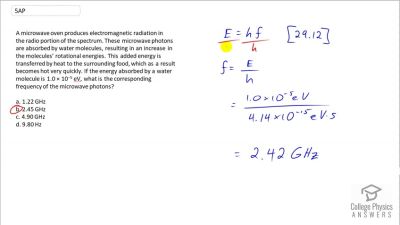 5AP
A microwave oven produces electromagnetic radiation in
the radio portion of the spectrum. These microwave photons
are absorbed by water molecules, resulting in an increase in
the molecules' rotational energies. This added energy is
transferred by heat to the surrounding food, which as a result
becomes hot very quickly. If the energy absorbed by a water
molecule is 1.0 × 10⁻⁵ eV, what is the corresponding
frequency of the microwave photons?
a. 1.22 GHz
b. 2.45 GHz
c. 4.90 GHz
d. 9.80 Hz
E = hf [29.12]
h
f = E
h
= 1.0 × 10⁻⁵ eV
4.14 × 10⁻¹⁵ eV·s
= 2.42 GHz
College Physics
ANSWERS